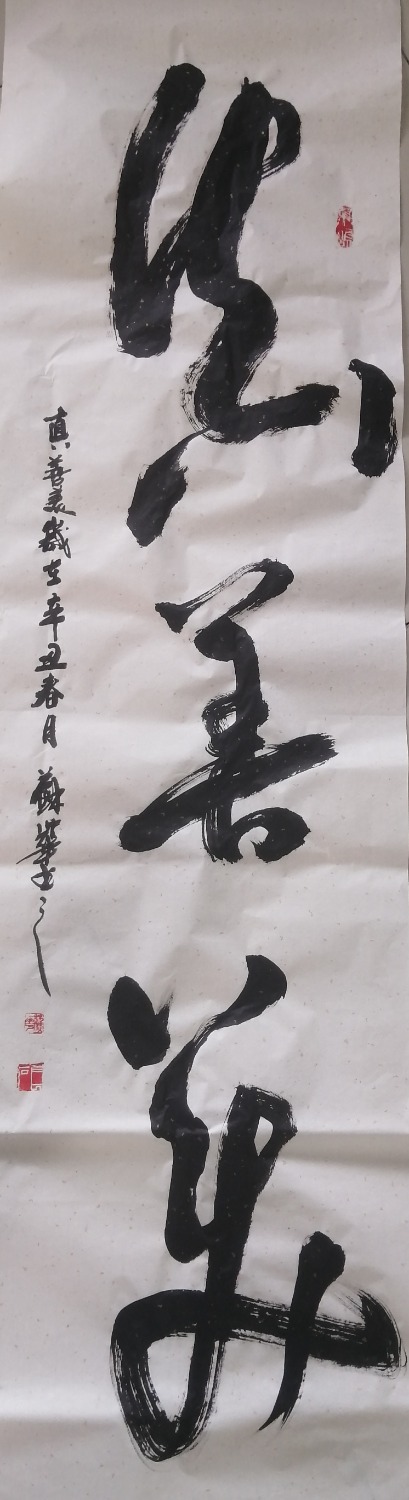 真善美
真善美歲在辛丑春月蘇華書之